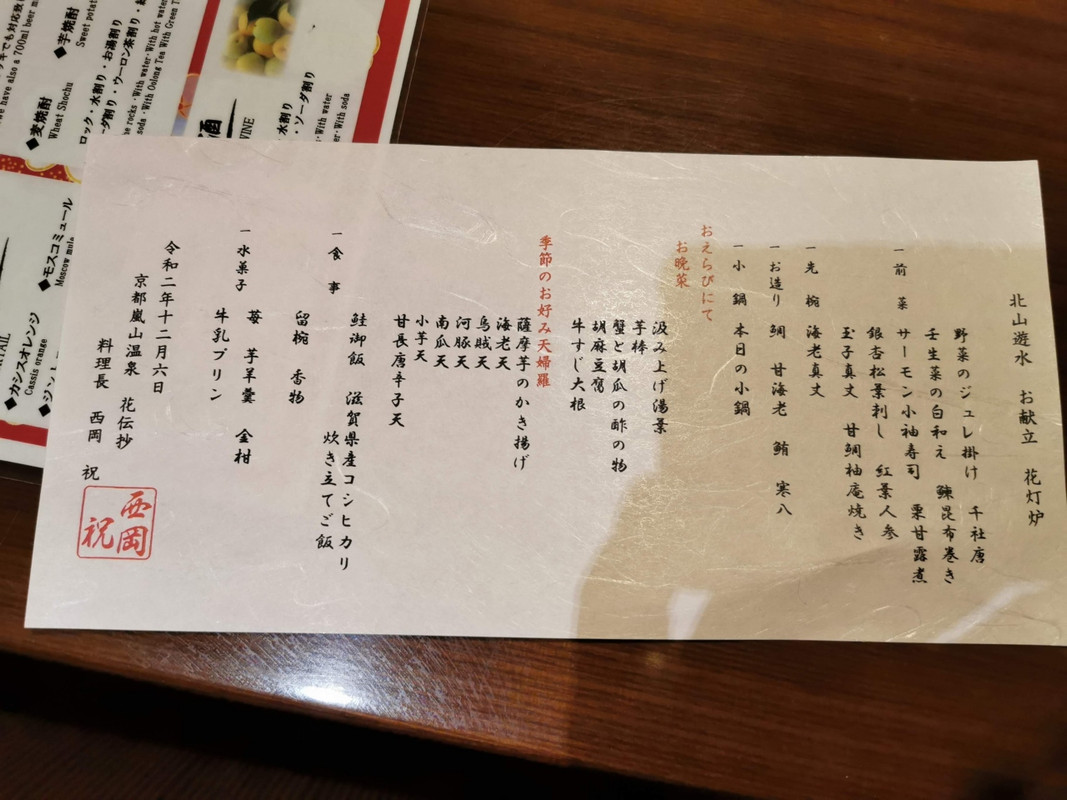 北山遊水 お献立 花灯炉
一前菜
野菜のジュレ掛け 千社唐
壬生菜の白和え 鰊昆布巻き
サーモン小袖寿司 栗甘露煮
銀杏松葉刺し 紅葉人参
玉子真丈 甘鯛柚庵焼き
一先椀 海老真丈
一お造り 鯛 甘海老 鮪 寒八
一小鍋 本日の小鍋
おえらびにて
お晩菜
汲み上げ湯葉
芋棒
蟹と胡瓜の酢の物
胡麻豆腐
牛すじ大根
季節のお好み天婦羅
薩摩芋のかき揚げ
海老天
烏賊天
河豚天
南瓜天
小芋天
甘長唐辛子天
一食事
鮭御飯 滋賀県産コシヒカリ
炊き立てご飯
留椀 香物
一水菓子
苺 芋羊羹 金柑
牛乳プリン
令和二年十二月六日
京都嵐山温泉 花伝抄
料理長 西岡 祝
西岡
祝
◆麦焼酎
Wheat Shochu
◆芋焼酎
ロック・水割り・お湯割り
水割り
・ソーダ割り
With water
With soda
◆モスコミュール
Moscow mule
◆カシスオレンジ
Cassis orange